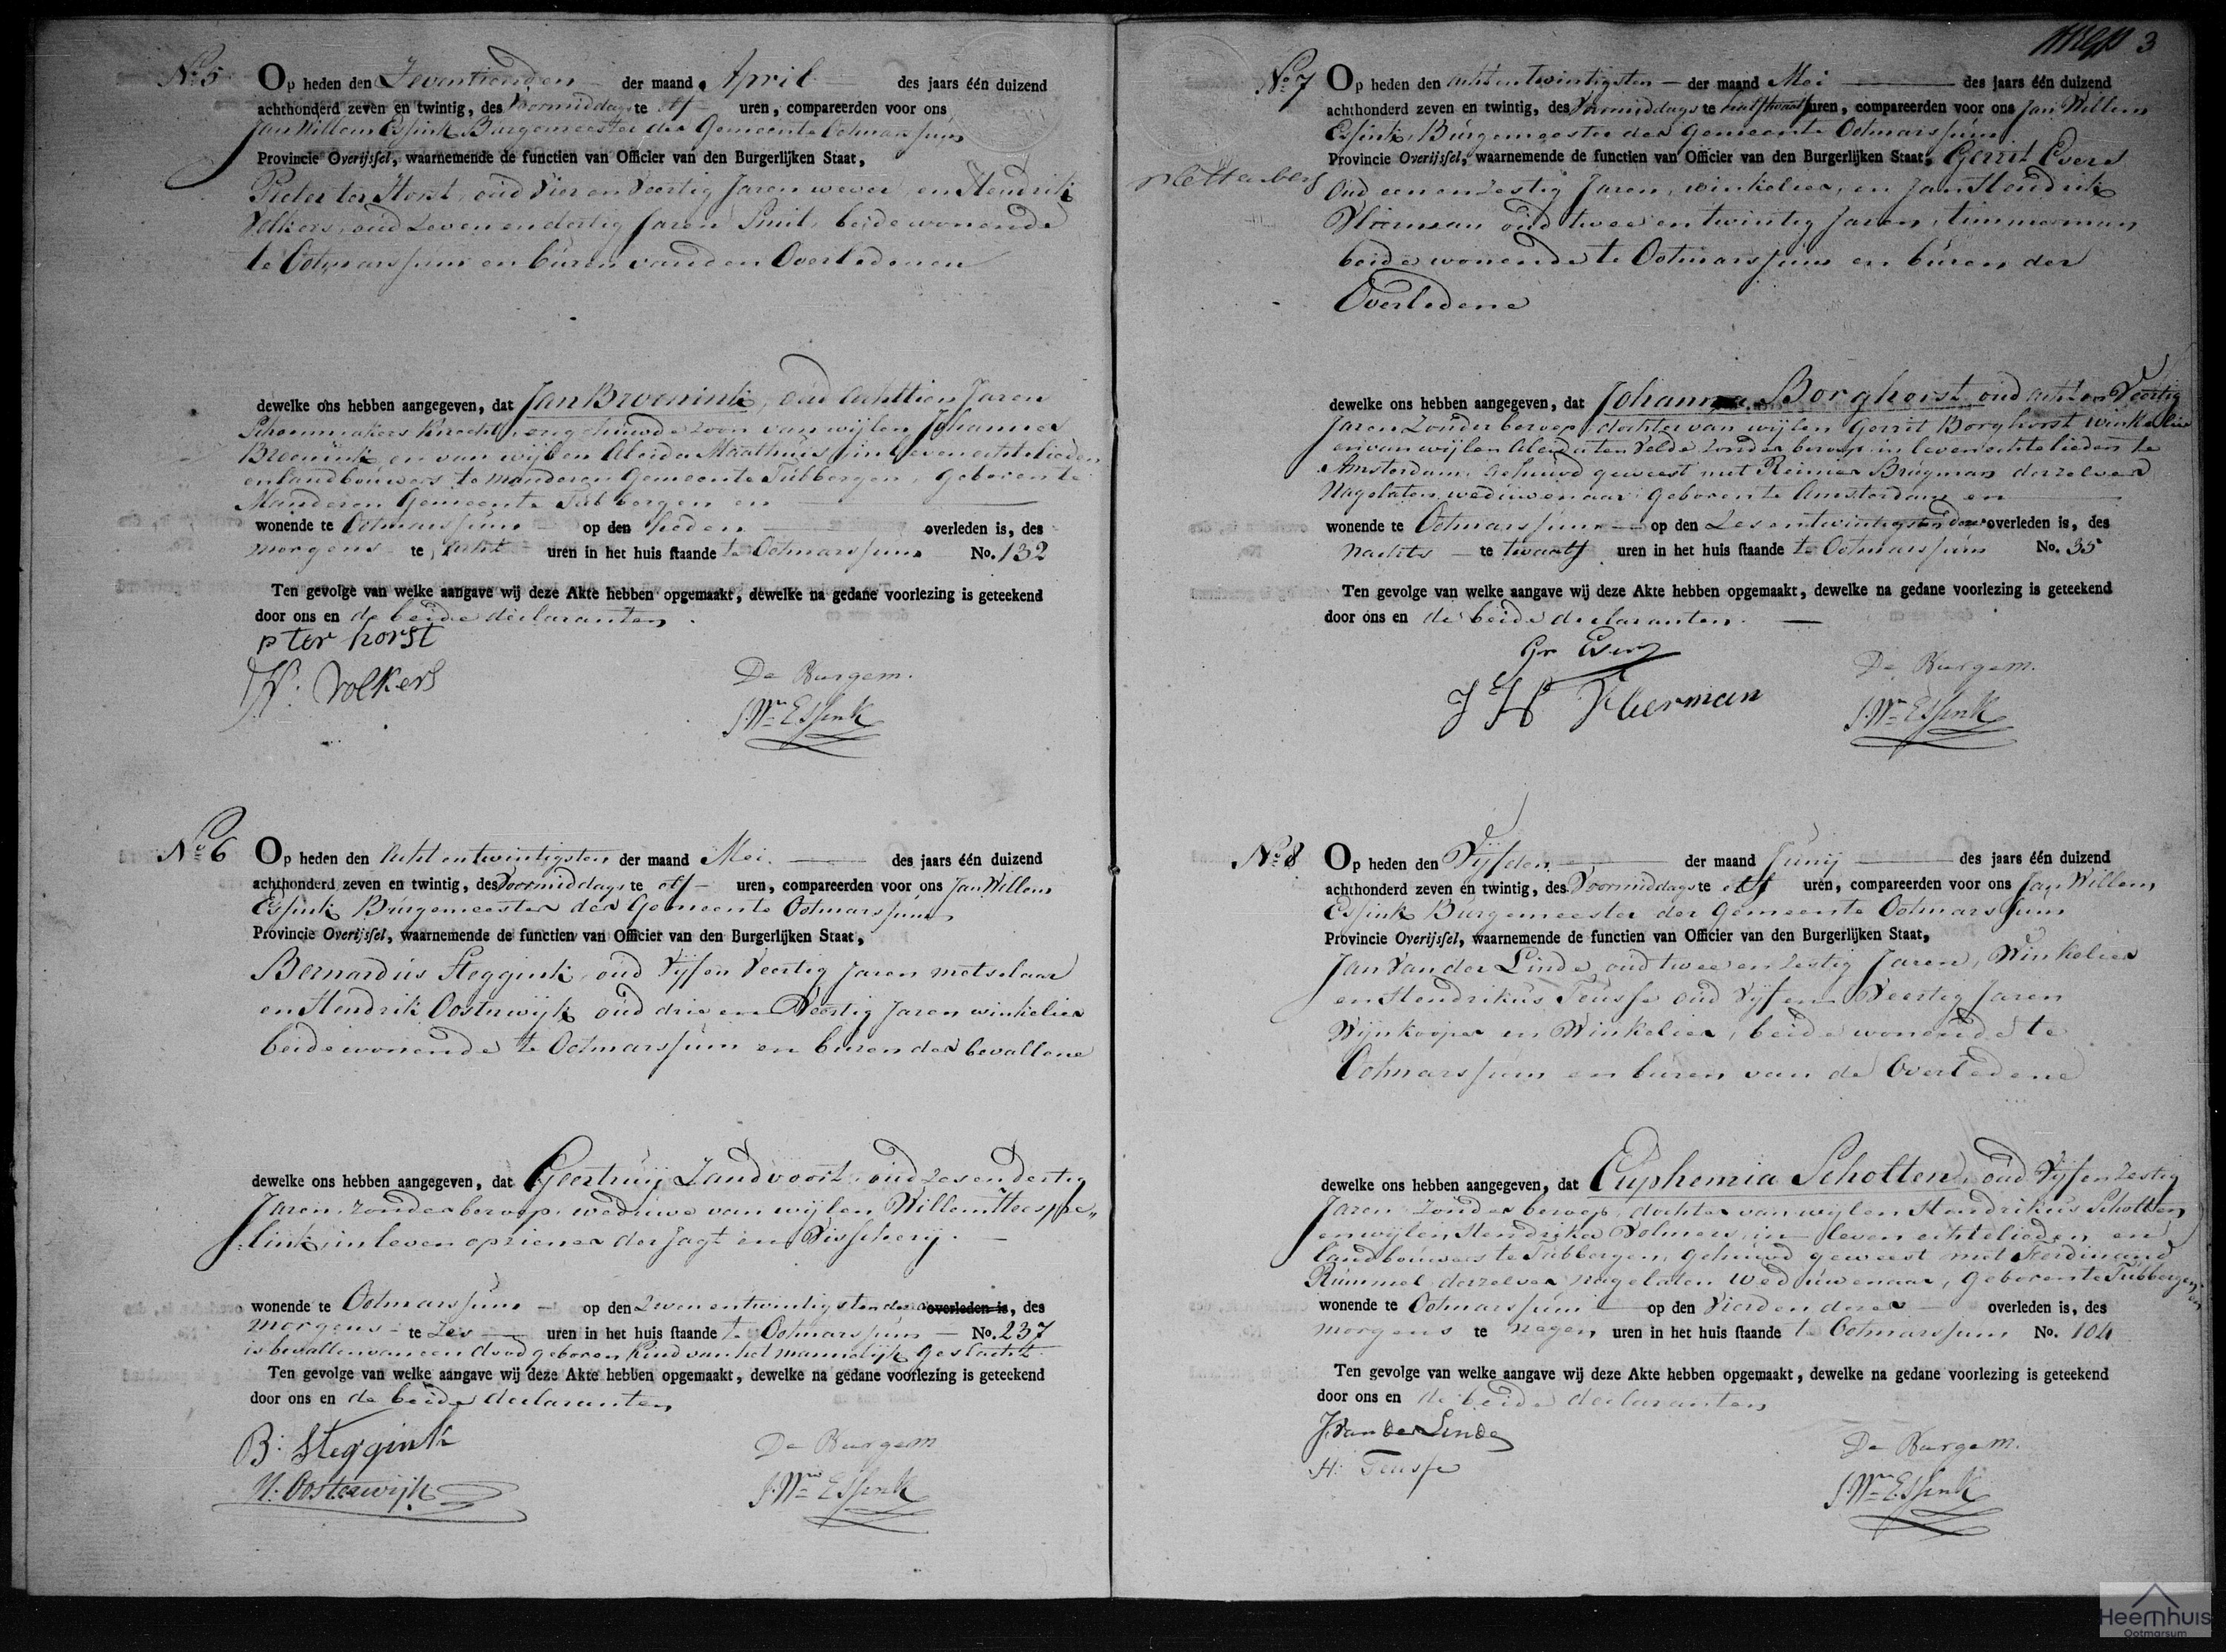 No 5 Op heden den Zeventienden der maand April des jaars één duizend
achthonderd zeven en twintig, des Voormiddags te elf uren, compareerden voor ons
Jan Willem Essink Burgemeester der Gemeente Ootmarssum
Provincie Overijssel, waarnemende de functien van Officier van den Burgerlijken Staat,
Pieter ter Horst, oud Vier en Veertig Jaren wever en Hendrik
Volkers, oud Zeven en dertig Jaren Smit, beide wonende
te Ootmarssum en buren van den Overledenen
dewelke ons hebben aangegeven, dat Jan Broenink, oud Achttien Jaren
Schoenmakers Knecht, ongehuwde zoon van wijlen Johannes
Broenink, en van wijlen Aleida Maathuis, in leven echtelieden
en landbouwers te Manderen Gemeente Tubbergen, geboren te
Manderen Gemeente Tubbergen en
wonende te Ootmarssum op den heden overleden is, des
morgens te acht uren in het huis staande te Ootmarssum No. 132
Ten gevolge van welke aangave wij deze Akte hebben opgemaakt, dewelke na gedane voorlezing is geteekend
door ons en de beide declaranten
p ter horst
H. Volkers
De Burgem.
J. Wm Essink
No 6 Op heden den Acht en twintigsten der maand Mei des jaars één duizend
achthonderd zeven en twintig, des Voormiddags te elf uren, compareerden voor ons Jan Willem
Essink Burgemeester der Gemeente Ootmarssum
Provincie Overijssel, waarnemende de functien van Officier van den Burgerlijken Staat,
Bernardus Steggink, oud Vijf en Veertig Jaren metselaar
en Hendrik Oosterwijk oud drie en Veertig Jaren winkelier
beide wonende te Ootmarssum en buren der bevallene
dewelke ons hebben aangegeven, dat Geertruij Zandvoort, oud zes en dertig
Jaren, zonder beroep, weduwe van wijlen Willem Heespe„
link, in leven opziener der Jagt en Visscherij.
wonende te Ootmarssum op den Zeven en twintigsten dezer overleden is, des
morgens te Zes uren in het huis staande te Ootmarssum No. 237
is bevallen van een dood geboren Kind van het mannelijk Geslacht
Ten gevolge van welke aangave wij deze Akte hebben opgemaakt, dewelke na gedane voorlezing is geteekend
door ons en de beide declaranten
B: Steggink
H. Oosterwijk
De Burgem
J. Wm Essink
3
No 7 Op heden den acht en twintigsten der maand Mei des jaars één duizend
achthonderd zeven en twintig, des Voormiddags te half twaalf uren, compareerden voor ons Jan Willem
Essink, Burgemeester der Gemeente Ootmarssum
Provincie Overijssel, waarnemende de functien van Officier van den Burgerlijken Staat, Gerrit Evers
Oud een en zestig Jaren, winkelier, en Jan Hendrik
oud twee en twintig Jaren, timmerman
beide wonende te Ootmarssum en buren der
Overledene
dewelke ons hebben aangegeven, dat Johanna Borghorst oud acht en Veertig
Jaren Zonder beroep, dochter van wijlen Gerrit Borghorst winkelier
en van wijlen Aleida ten Velde zonder beroep in leven echtelieden te
Amsterdam, gehuwd geweest met Reinier Brugman derzelver
Nagelaten weduwenaar, geboren te Amsterdam en
wonende te Ootmarssum op den Zes en twintigsten dezer overleden is, des
nachts te twaalf uren in het huis staande te Ootmarssum No. 35
Ten gevolge van welke aangave wij deze Akte hebben opgemaakt, dewelke na gedane voorlezing is geteekend
door ons en de beide declaranten.
Gr Evers
J H
De Burgem.
J. Wm Essink
No 8 Op heden den Vijfden der maand Junij des jaars één duizend
achthonderd zeven en twintig, des Voormiddags te elf uren, compareerden voor ons Jan Willem
Essink Burgemeester der Gemeente Ootmarssum
Provincie Overijssel, waarnemende de functien van Officier van den Burgerlijken Staat,
Jan Van der Linde, oud twee en zestig Jaren, Winkelier
en Hendrikus Teusse oud Vijf en Veertig Jaren
Wijnkooper en Winkelier, beide wonende te
Ootmarssum en buren van de Overledene
dewelke ons hebben aangegeven, dat Euphemia Scholten, oud Vijf en zestig
Jaren Zonder beroep, dochter van wijlen Hendrikus Scholten
en wijlen Hendrika Volmers, in leven echtelieden en
landbouwers te Tubbergen, gehuwd geweest met Ferdinand
Rummel derzelver nagelaten weduwenaar, geboren te Tubbergen en
wonende te Ootmarssum op den Vierden dezer overleden is, des
morgens te negen uren in het huis staande te Ootmarssum No. 104
Ten gevolge van welke aangave wij deze Akte hebben opgemaakt, dewelke na gedane voorlezing is geteekend
door ons en de beide declaranten
J. van der Linde
H: Teusse
De Burgem.
J. Wm Essink
Heemhuis
Ootmarsum